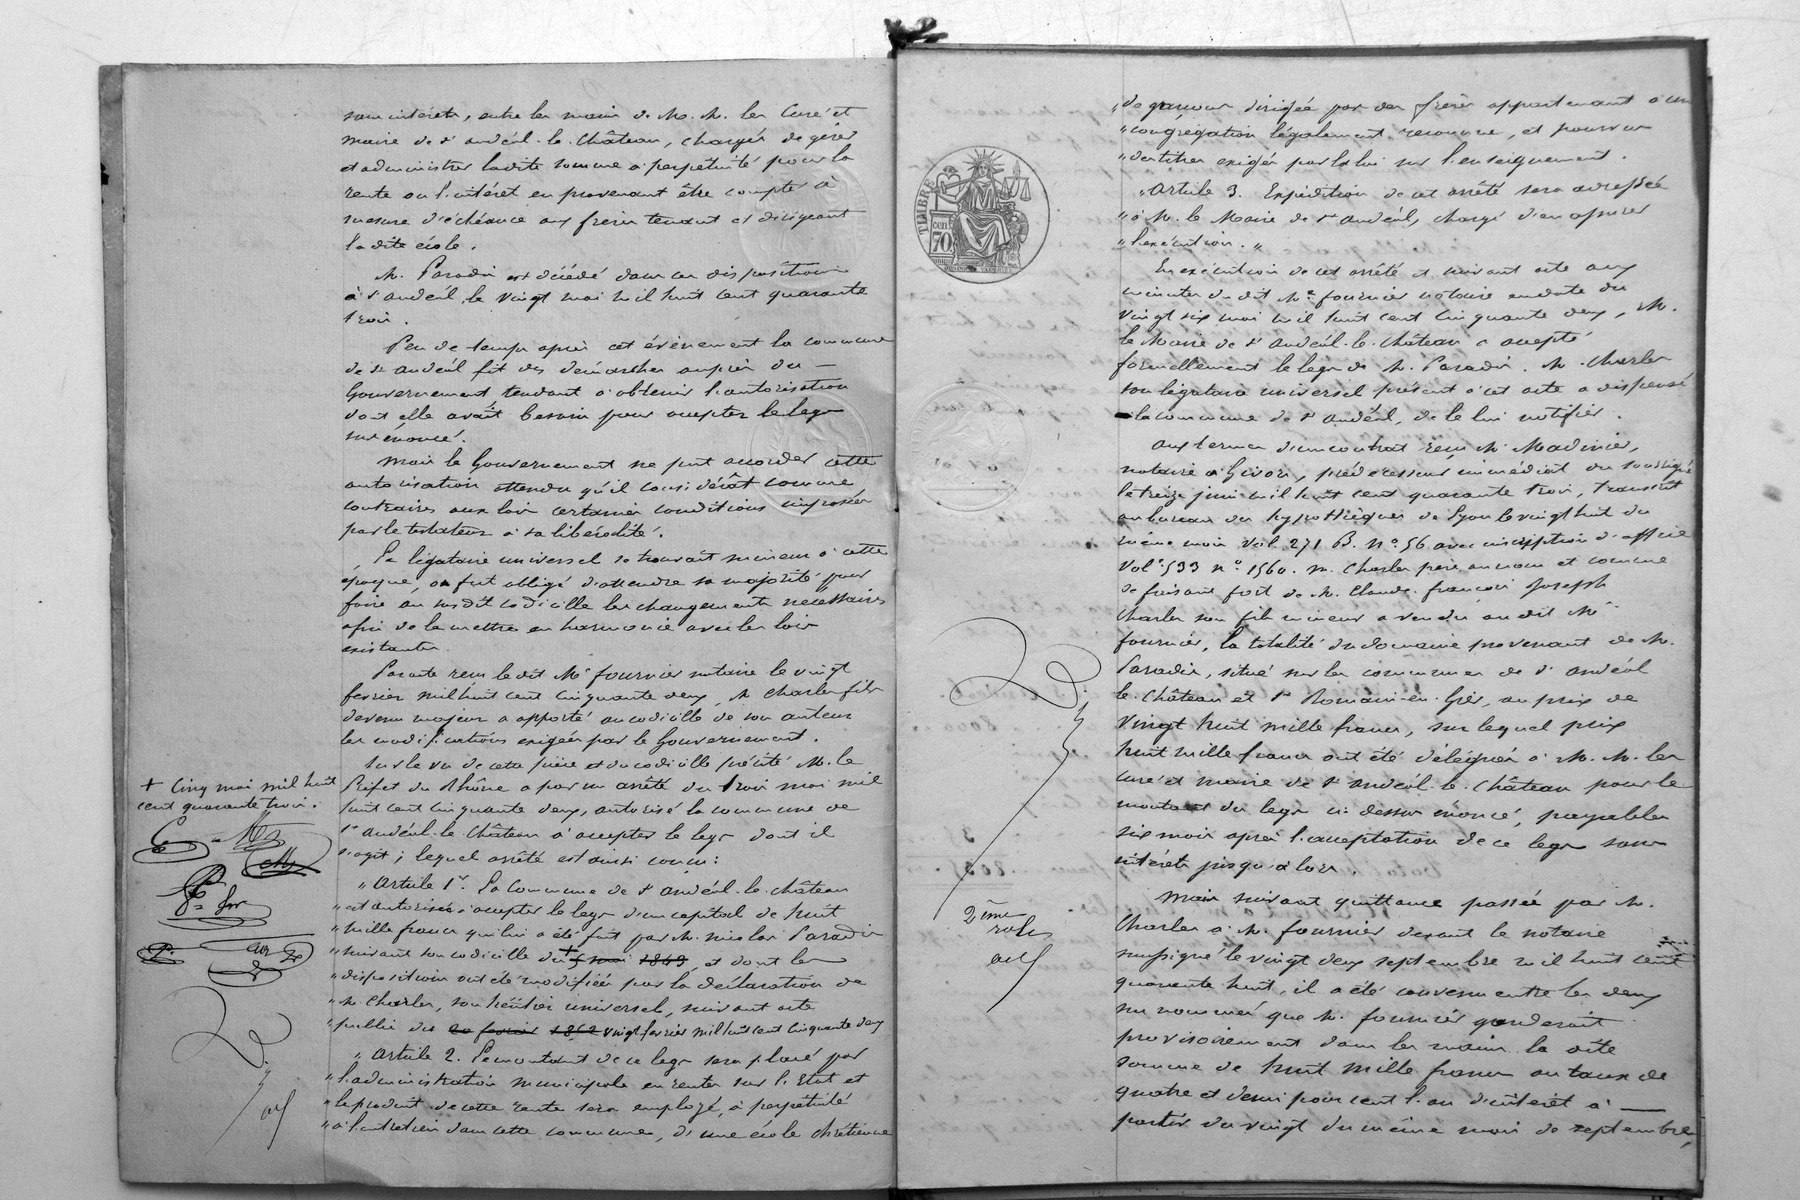 sans intérêts, entre les mains de M. M. les Curé et
maire de St Andéol-le-Château, chargés de gérer
et administrer ladite somme à perpétuité pour la
rente ou l'intérêt en provenant être compter à
mesure d'échéance aux frères tenant et dirigeant
la dite école.
M. Paradis est décédé dans ces dispositions
à St Andéol, le vingt mai mil huit cent quarante
trois.
Peu de temps après cet évènement la commune
de St Andéol fit des démarches auprès du —
Gouvernement tendant à obtenir l'autorisation
dont elle avait besoin pour accepter le legs
sus énoncé.
Mais le Gouvernement ne put accorder cette
autorisation attendu qu'il considérât comme
contraires aux lois certaines conditions imposées
par le testateur à sa libéralité.
Le légataire universel se trouvait mineur à cette
époque, on fut obligé d'attendre sa majorité pour
faire au susdit codicille les changements nécessaires
afin de le mettre en harmonie avec les lois
existantes.
Par acte reçu le dit Me Fournier notaire le vingt
février mil huit cent cinquante deux, M. Charles fils
devenu majeur a apporté au codicille de son auteur
les modifications exigées par le Gouvernement.
Sur le vu de cette pièce et du codicille précité M. le
Préfet du Rhône a par un arrêté du trois mai mil
huit cent cinquante deux, autorisé la commune de
St Andéol-le-Château à accepter le legs dont il
s'agit; lequel arrêté est ainsi conçu:
„ Article 1er. La Commune de St Andéol-le-Château
„ est autorisée à accepter le legs d'un capital de huit
„ mille francs qui lui a été fait par M. Nicolas Paradis
„ suivant son codicille du + 5 mai 1843 et dont les
„ dispositions ont été modifiées par la déclaration de
„ M. Charles, son héritier universel, suivant acte
„ public du 20 février 1852 vingt février mil huit cent cinquante deux
„ Article 2. Le montant de ce legs sera placé par
„ l'administration municipale en rentes sur l'Etat et
„ le produit de cette rente sera employé, à perpétuité
„ à l'entretien dans cette commune, d'une école chrétienne
+ Cinq mai mil huit
cent quarante trois.
„ de garçons dirigée par des frères appartenant à une
„ congrégation légalement reconnue, et pourvus
„ des titres exigés par la loi sur l'enseignement.
„ Article 3. Expédition de cet arrêté sera adressée
„ à M. le Maire de St Andéol, chargé d'en assurer
„ l'exécution. „
En exécution de cet arrêté et suivant acte aux
minutes du dit Me Fournier notaire en date du
vingt six mai mil huit cent cinquante deux, M.
le Maire de St Andéol-le-Château a accepté
formellement le legs de M. Paradis. M. Charles
son légataire universel présent à cet acte a dispensé
la commune de St Andéol, de le lui notifier.
Aux termes d'un contrat reçu Me Madinier,
notaire à Givors, prédécesseur immédiat du soussigné
le treize juin mil huit cent quarante trois, transcrit
au bureau des hypothèques de Lyon le vingt huit du
même mois Vol. 271 B. No 56 avec inscription d'office
Vol. 533 no 1560. M. Charles père au nom et comme
se faisant fort de M. Claude François Joseph
Charles son fils mineur a vendu au dit Me
Fournier, la totalité du domaine provenant de M.
Paradis, situé sur les communes de St Andéol
le-Château et St Romain-en-Gier, au prix de
vingt huit mille francs, sur lequel prix
huit mille francs ont été délégués à M. M. les
curé et maire de St Andéol-le-Château pour le
montant du legs ci-dessus énoncé, payables
six mois après l'acceptation de ce legs sans
intérêts jusqu'alors.
Mais suivant quittance passée par M.
Charles à M. Fournier devant le notaire
soussigné le vingt deux septembre mil huit cent
quarante huit, il a été convenu entre les deux
sus nommés que M. Fournier garderait
provisoirement dans les mains la dite
somme de huit mille francs au taux de
quatre et demi pour cent l'an d'intérêt à —
partir du vingt du même mois de septembre,
TIMBRE
70 cen.
2ème
rôle